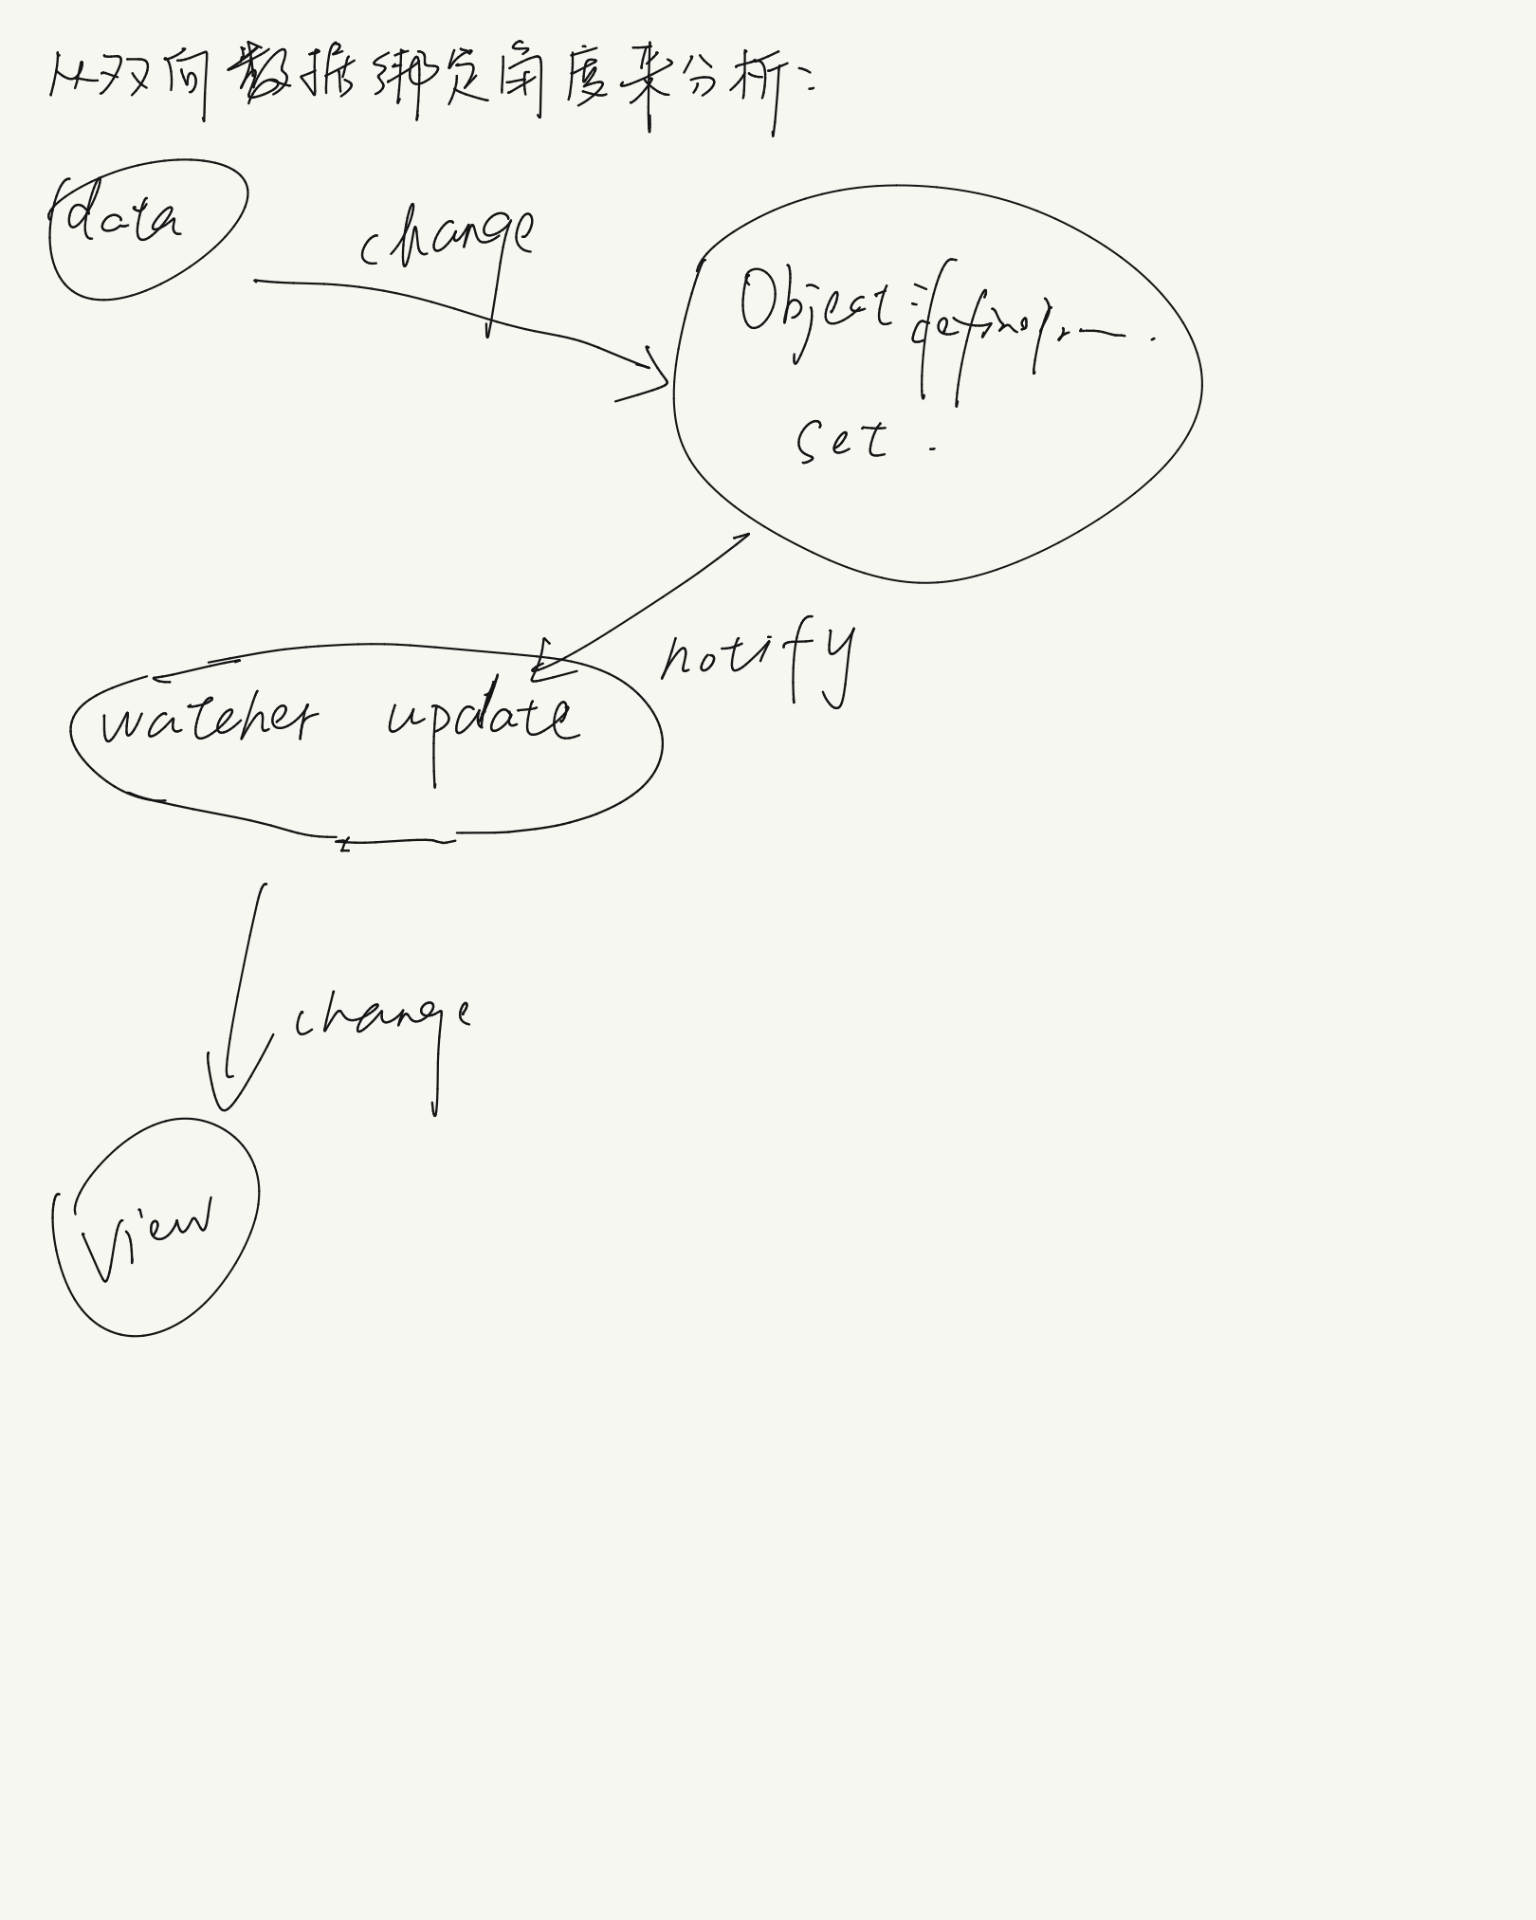 从双向数据绑定角度来分析:
data
change
Object.
set.
notify
watcher update
change
view